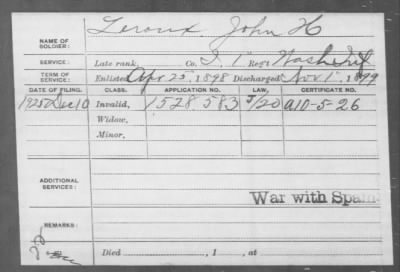 Leroux, John H
NAME OF SOLDIER:
SERVICE: Late rank, Co. I, 1" Reg't Wash Inf
TERM OF SERVICE: Enlisted Apr 25, 1898 Discharged Nov. 1, 1899
DATE OF FILING. CLASS. APPLICATION NO. LAW. CERTIFICATE NO.
1925 Dec 10 Invalid, 1528 583 J/20 a10-5-26
Widow,
Minor,
ADDITIONAL SERVICES:
War with Spain
REMARKS:
Died , 1 , at